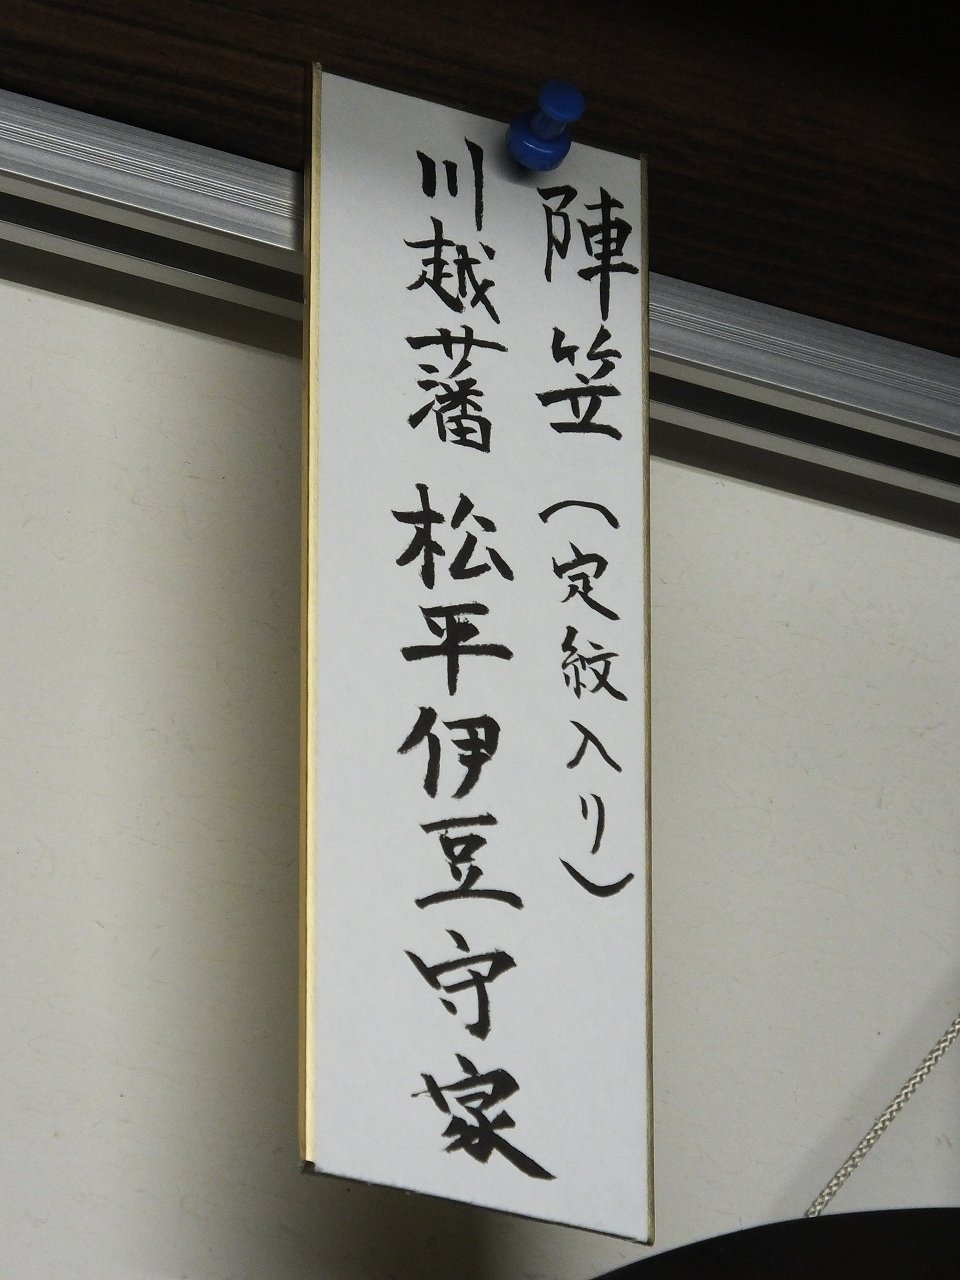 陣笠（定紋入り）
川越藩 松平伊豆守家